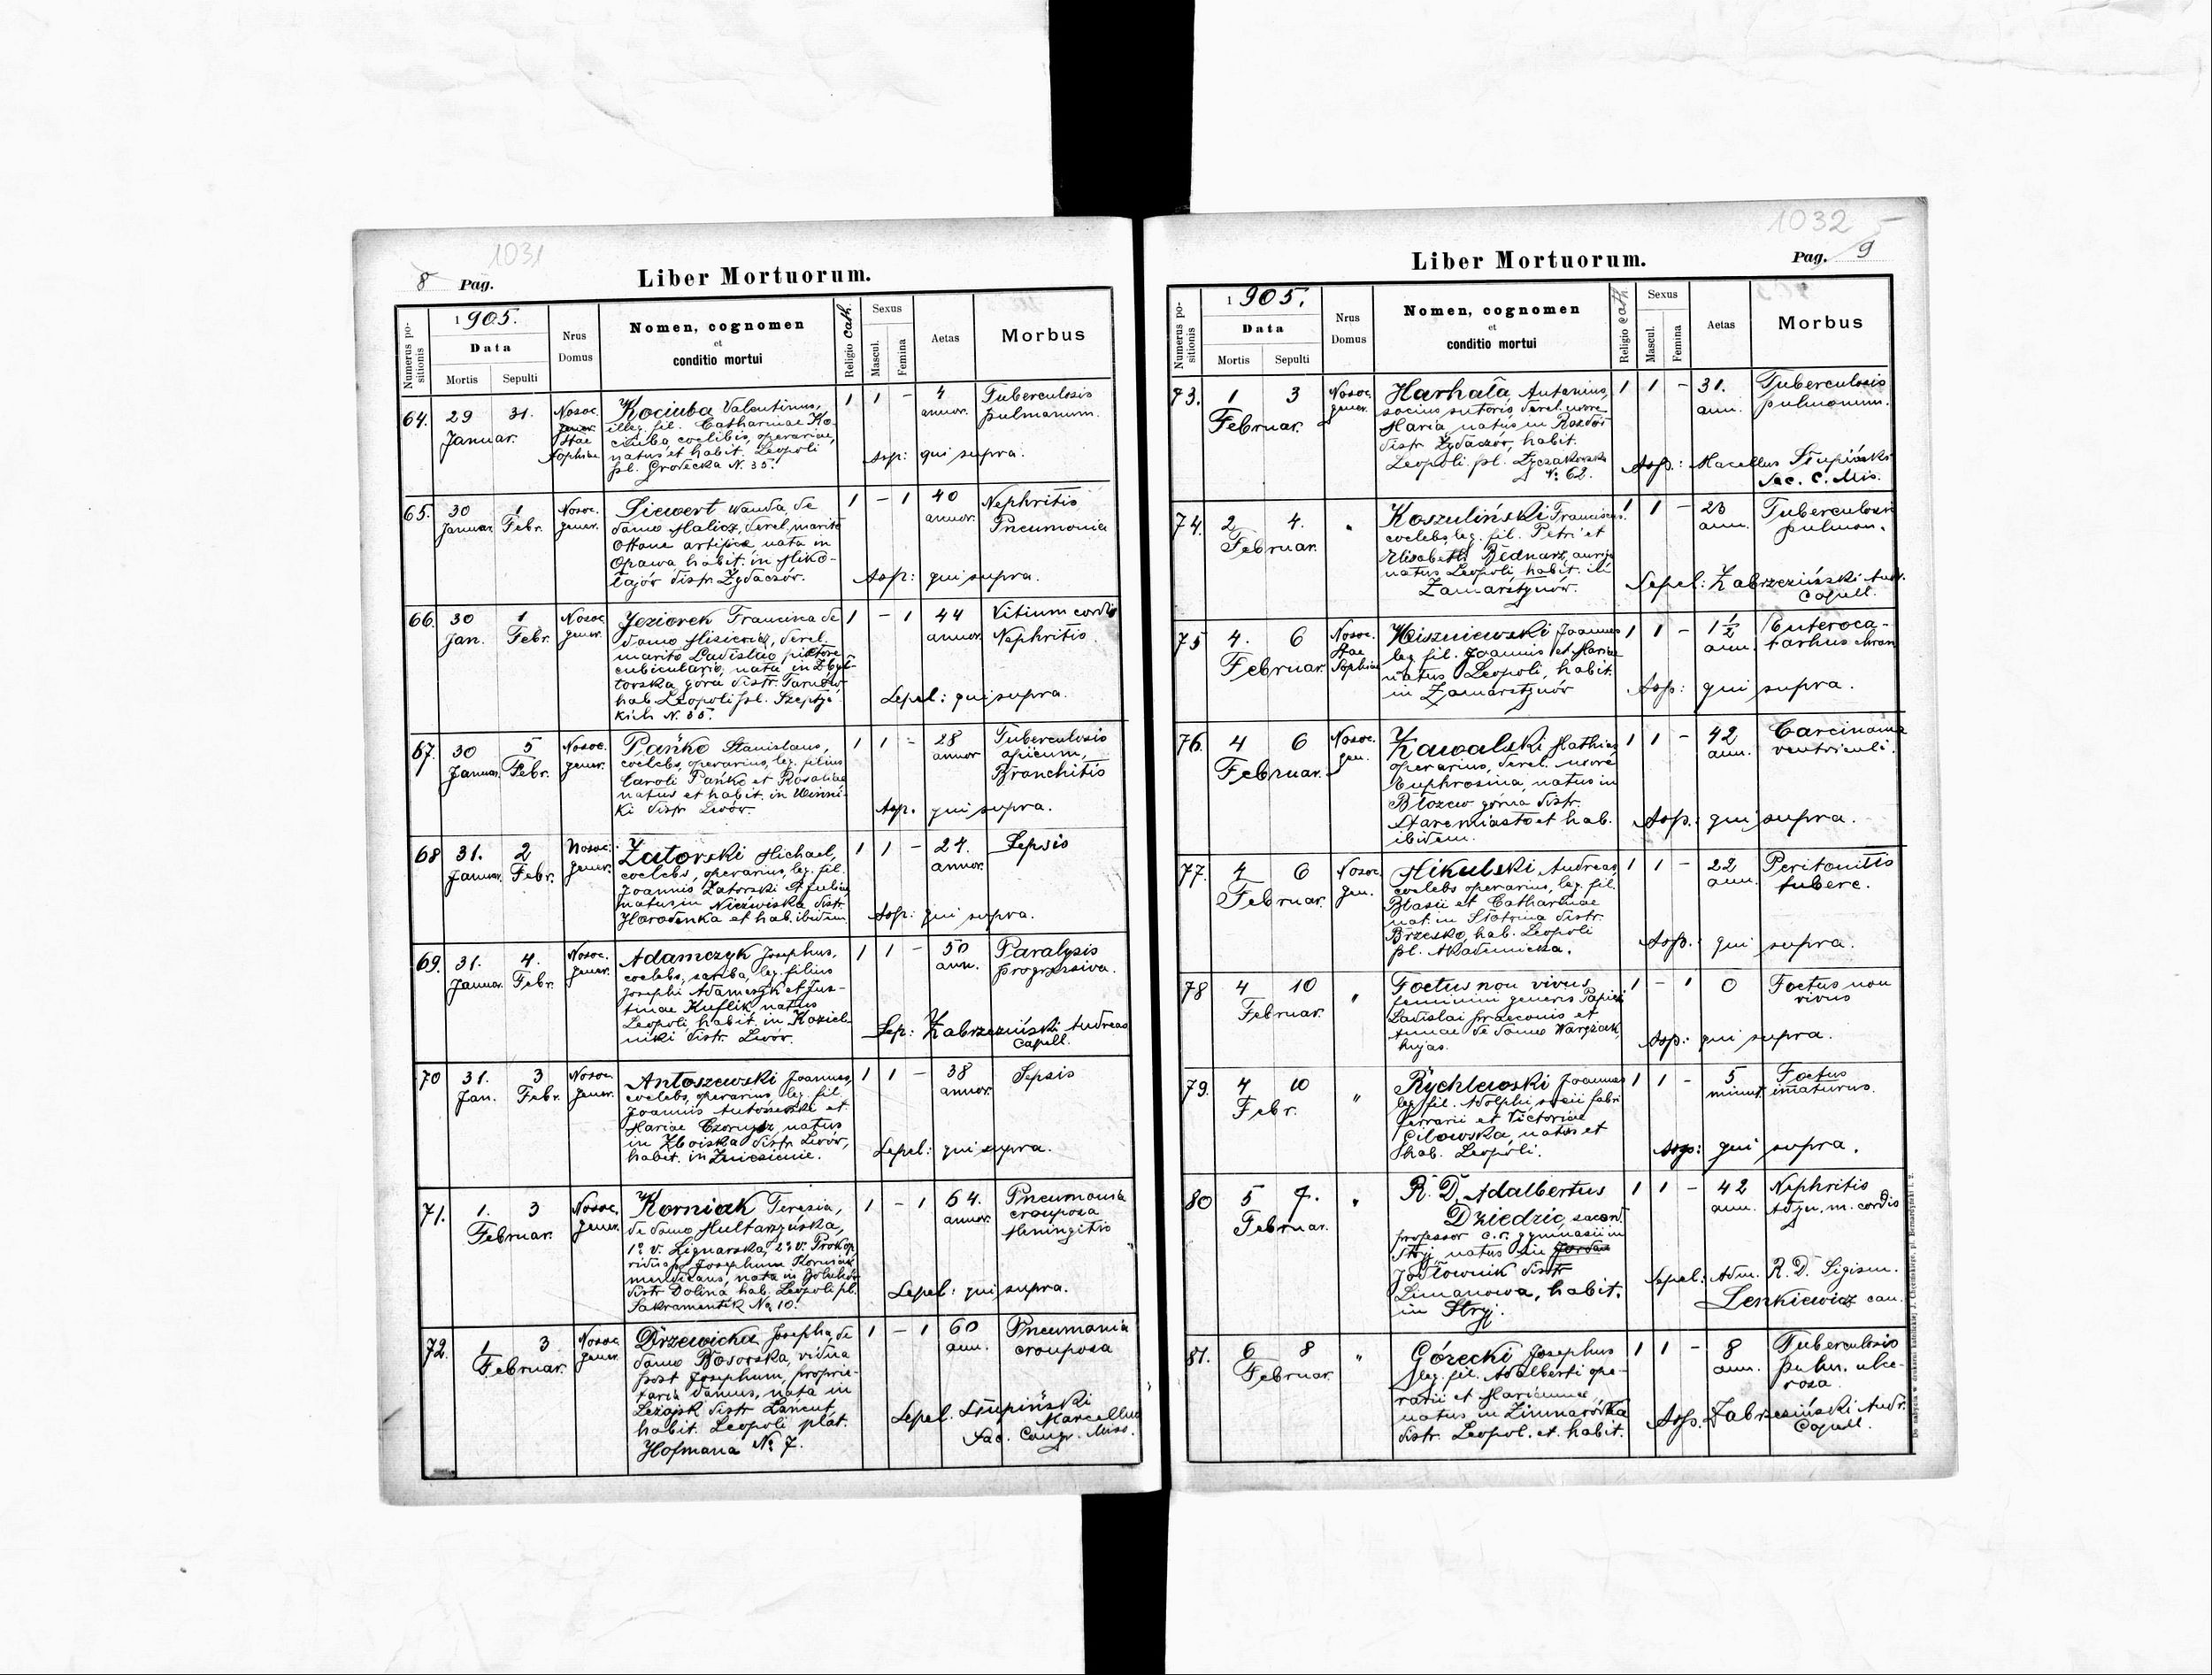 1031
8 Pag.
Liber Mortuorum.
Numerus positionis
1905.
Data
Mortis
Sepulti
Nrus Domus
Nomen, cognomen
et
conditio mortui
Religio cath.
Sexus
Mascul.
Femina
Aetas
Morbus
64.
29 31.
Januar.
Nosoc.
gener.
Stae
Sophiae
Kociuba Valentinus,
illeg. fil. Catharinae Ko-
ciuba, coelibis, operariae,
natus et habit. Leopoli
pl. Grodecka N. 35.
1 1 -
4
annor.
Tuberculosis
pulmonum.
Asp: qui supra.
65.
30 1
Januar. Febr.
Nosoc.
gener.
Siewert Wanda, de
domo Malicz, derel. marito
Ottone artifice nata in
Opawa habit. in Miko-
łajów distr. Żydaczów.
1 - 1
40
annor.
Nephritis
Pneumonia
Asp: qui supra.
66.
30 1
Jan. Febr.
Nosoc.
gener.
Jeziorek Francisca de
domo Misiewicz, derel.
marito Ladislao, pictore
cubiculario, nata in Zbyl-
torska góra distr. Tarnów
hab. Leopoli pl. Szeptyc-
kich N. 35.
1 - 1
44
annor.
Vitium cordis
Nephritis
Sepel: qui supra.
67.
30 5
Januar. Febr.
Nosoc.
gener.
Pańko Stanislaus,
coelebs, operarius, leg. filius
Caroli Pańko et Rosaliae
natus et habit. in Winni-
ki distr. Lwów.
1 1 -
28
annor
Tuberculosis
apicum,
Bronchitis
Asp. qui supra.
68
31. 2
Januar. Febr.
Nosoc.
gener.
Zatorski Michael,
coelebs, operarius, leg. fil.
Joannis Zatorski et Julia
natus in Niezwiska distr.
Horodenka et hab. ibidem
1 1 -
24.
annor.
Sepsis
Asp: qui supra.
69.
31. 4.
Januar. Febr.
Nosoc.
gener.
Adamczyk Josephus,
coelebs, scriba, leg. filius
Josephi Adamczyk et Jus-
tinae Kuflik, natus
Leopoli, habit. in Koziel-
niki distr. Lwów.
1 1 -
50
ann.
Paralysis
progressiva.
Sep: Zabrzeziński Andreas
Capell.
70
31. 3
Jan. Febr.
Nosoc.
gener.
Antoszewski Joannes,
coelebs, operarius, leg. fil.
Joannis Antoszewski et
Mariae natus
in Zboiska distr. Lwów,
habit. in Zniesienie.
1 1 -
38
annor.
Sepsis
Sepel: qui supra.
71.
1. 3
Februar.
Nosoc.
gener.
Korniak Teresia,
de domo Multarzyńska,
1º v. Lignarska, 2º v. Prokop,
vidua p. Josephum Korniak
mendicans, nata in
distr. Dolina hab. Leopoli pl.
Sakramentek No 10.
1 - 1
64.
annor.
Pneumonia
crouposa
Meningitis
Sepel: qui supra.
72.
1 3
Februar.
Nosoc.
gener.
Drzewicka Josepha, de
domo Bosorska, vidua
post Josephum, proprie-
taria domus, nata in
Leżajsk distr. Łańcut,
habit. Leopoli plat.
Hofmana No 7.
1 - 1
60
ann.
Pneumonia
crouposa
Sepel. Słupiński
Marcellus
Sac. Congr. Miss.
1032
Liber Mortuorum.
Pag. 9
Numerus positionis
1905.
Data
Mortis
Sepulti
Nrus Domus
Nomen, cognomen
et
conditio mortui
Religio cath.
Sexus
Mascul.
Femina
Aetas
Morbus
73.
1 3
Februar.
Nosoc.
gener.
Harhała Antonius,
socius sutoris, derel. uxore
Maria, natus in Rozdół
distr. Żydaczów, habit.
Leopoli. pl. Łyczakowska
No 62.
1 1 -
31.
ann.
Tuberculosis
pulmonum.
Asp.: Macellus Słupiński
Sac. C. Mis.
74.
2 4.
Februar.
"
Koszuliński Franciscus.
coelebs, leg. fil. Petri et
Elisabeth Bednarz, auriga
natus Leopoli, habit. ibi
Zamarstynów.
1 1 -
23
ann.
Tuberculosis
pulmon.
Sepel: Zabrzeziński Andr.
Capell.
75
4. 6
Februar.
Nosoc.
Stae
Sophiae
Wiszniewski Joannes
leg. fil. Joannis et Mariae
natus Leopoli, habit.
in Zamarstynów
1 1 -
1 1/2
ann.
Enteroca-
tarhus chron
Asp: qui supra.
76.
4 6
Februar.
Nosoc.
gen.
Kawalski Mathias
operarius, derel. uxore
Euphrosina, natus in
Błozew górna distr.
Staremiasto et hab.
ibidem.
1 1 -
42
ann.
Carcinoma
ventriculi.
Asp.: qui supra.
77.
4 6
Februar.
Nosoc.
gen.
Mikulski Andreas
coelebs operarius, leg. fil.
Blasii et Catharinae
nat. in Słotwina distr.
Brzesko, hab. Leopoli
pl. Akademicka.
1 1 -
22
ann.
Peritonitis
tuberc.
Asp.: qui supra.
78
4 10
Februar.
"
Foetus non vivus
feminini generis
Ladislai praeconis et
Annae de domo
hujas.
1 - 1
0
Foetus non
vivus
Asp: qui supra.
79.
4 10
Febr.
"
Rychlewski Joannes
leg. fil. Adolphi, socii fabri
ferrarii et Victoriae
Gilowska, natus et
hab. Leopoli.
1 1 -
5
minut.
Foetus
imaturus.
Asp: qui supra.
80
5 7.
Februar.
"
R. D. Adalbertus
Dziedzic, sacerd.
professor c.r. gymnasii in
Stryj natus in
Jodłownik distr
Limanowa, habit.
in Stryj.
1 1 -
42
ann.
Nephritis
Adyn. m. cordis
Sepel: Adm. R. D. Sigism.
Lenkiewicz can.
81.
6 8
Februar.
"
Górecki Josephus
leg. fil. Adalberti ope-
rarii et Mariannae,
natus in Zimnawódka
distr. Leopol. et. habit.
1 1 -
8
ann.
Tuberculosis
pulm. ulce-
rosa.
Asp. Zabrzeziński Andr.
Capell.